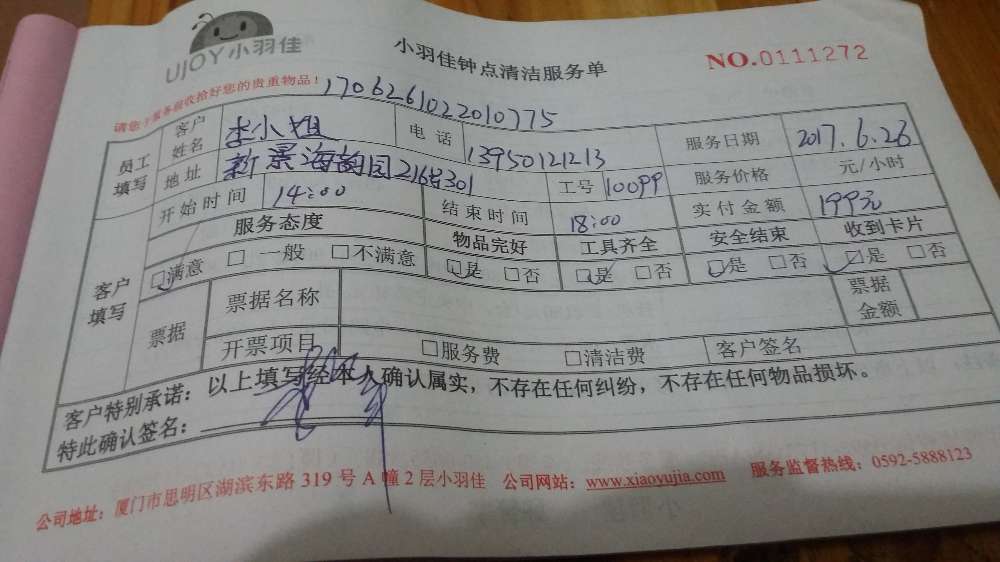 UJOY小羽佳
小羽佳钟点清洁服务单
NO.0111272
请您于服务前收拾好您的贵重物品！
1706261022010775
员工填写 客户姓名 李小姐 电话 13950121213 服务日期 2017.6.26
地址 新景海韵园216号301 工号 100PP 服务价格 元/小时
开始时间 14:00 结束时间 18:00 实付金额 199元
客户填写 服务态度 物品完好 工具齐全 安全结束 收到卡片
☑满意 □一般 □不满意 ☑是 □否 ☑是 □否 ☑是 □否 ☑是 □否
票据 票据名称 票据金额
开票项目 □服务费 □清洁费 客户签名
客户特别承诺：以上填写经本人确认属实，不存在任何纠纷，不存在任何物品损坏。
特此确认签名：
公司地址：厦门市思明区湖滨东路 319 号 A 幢 2 层小羽佳 公司网站：www.xiaoyujia.com 服务监督热线：0592-5888123